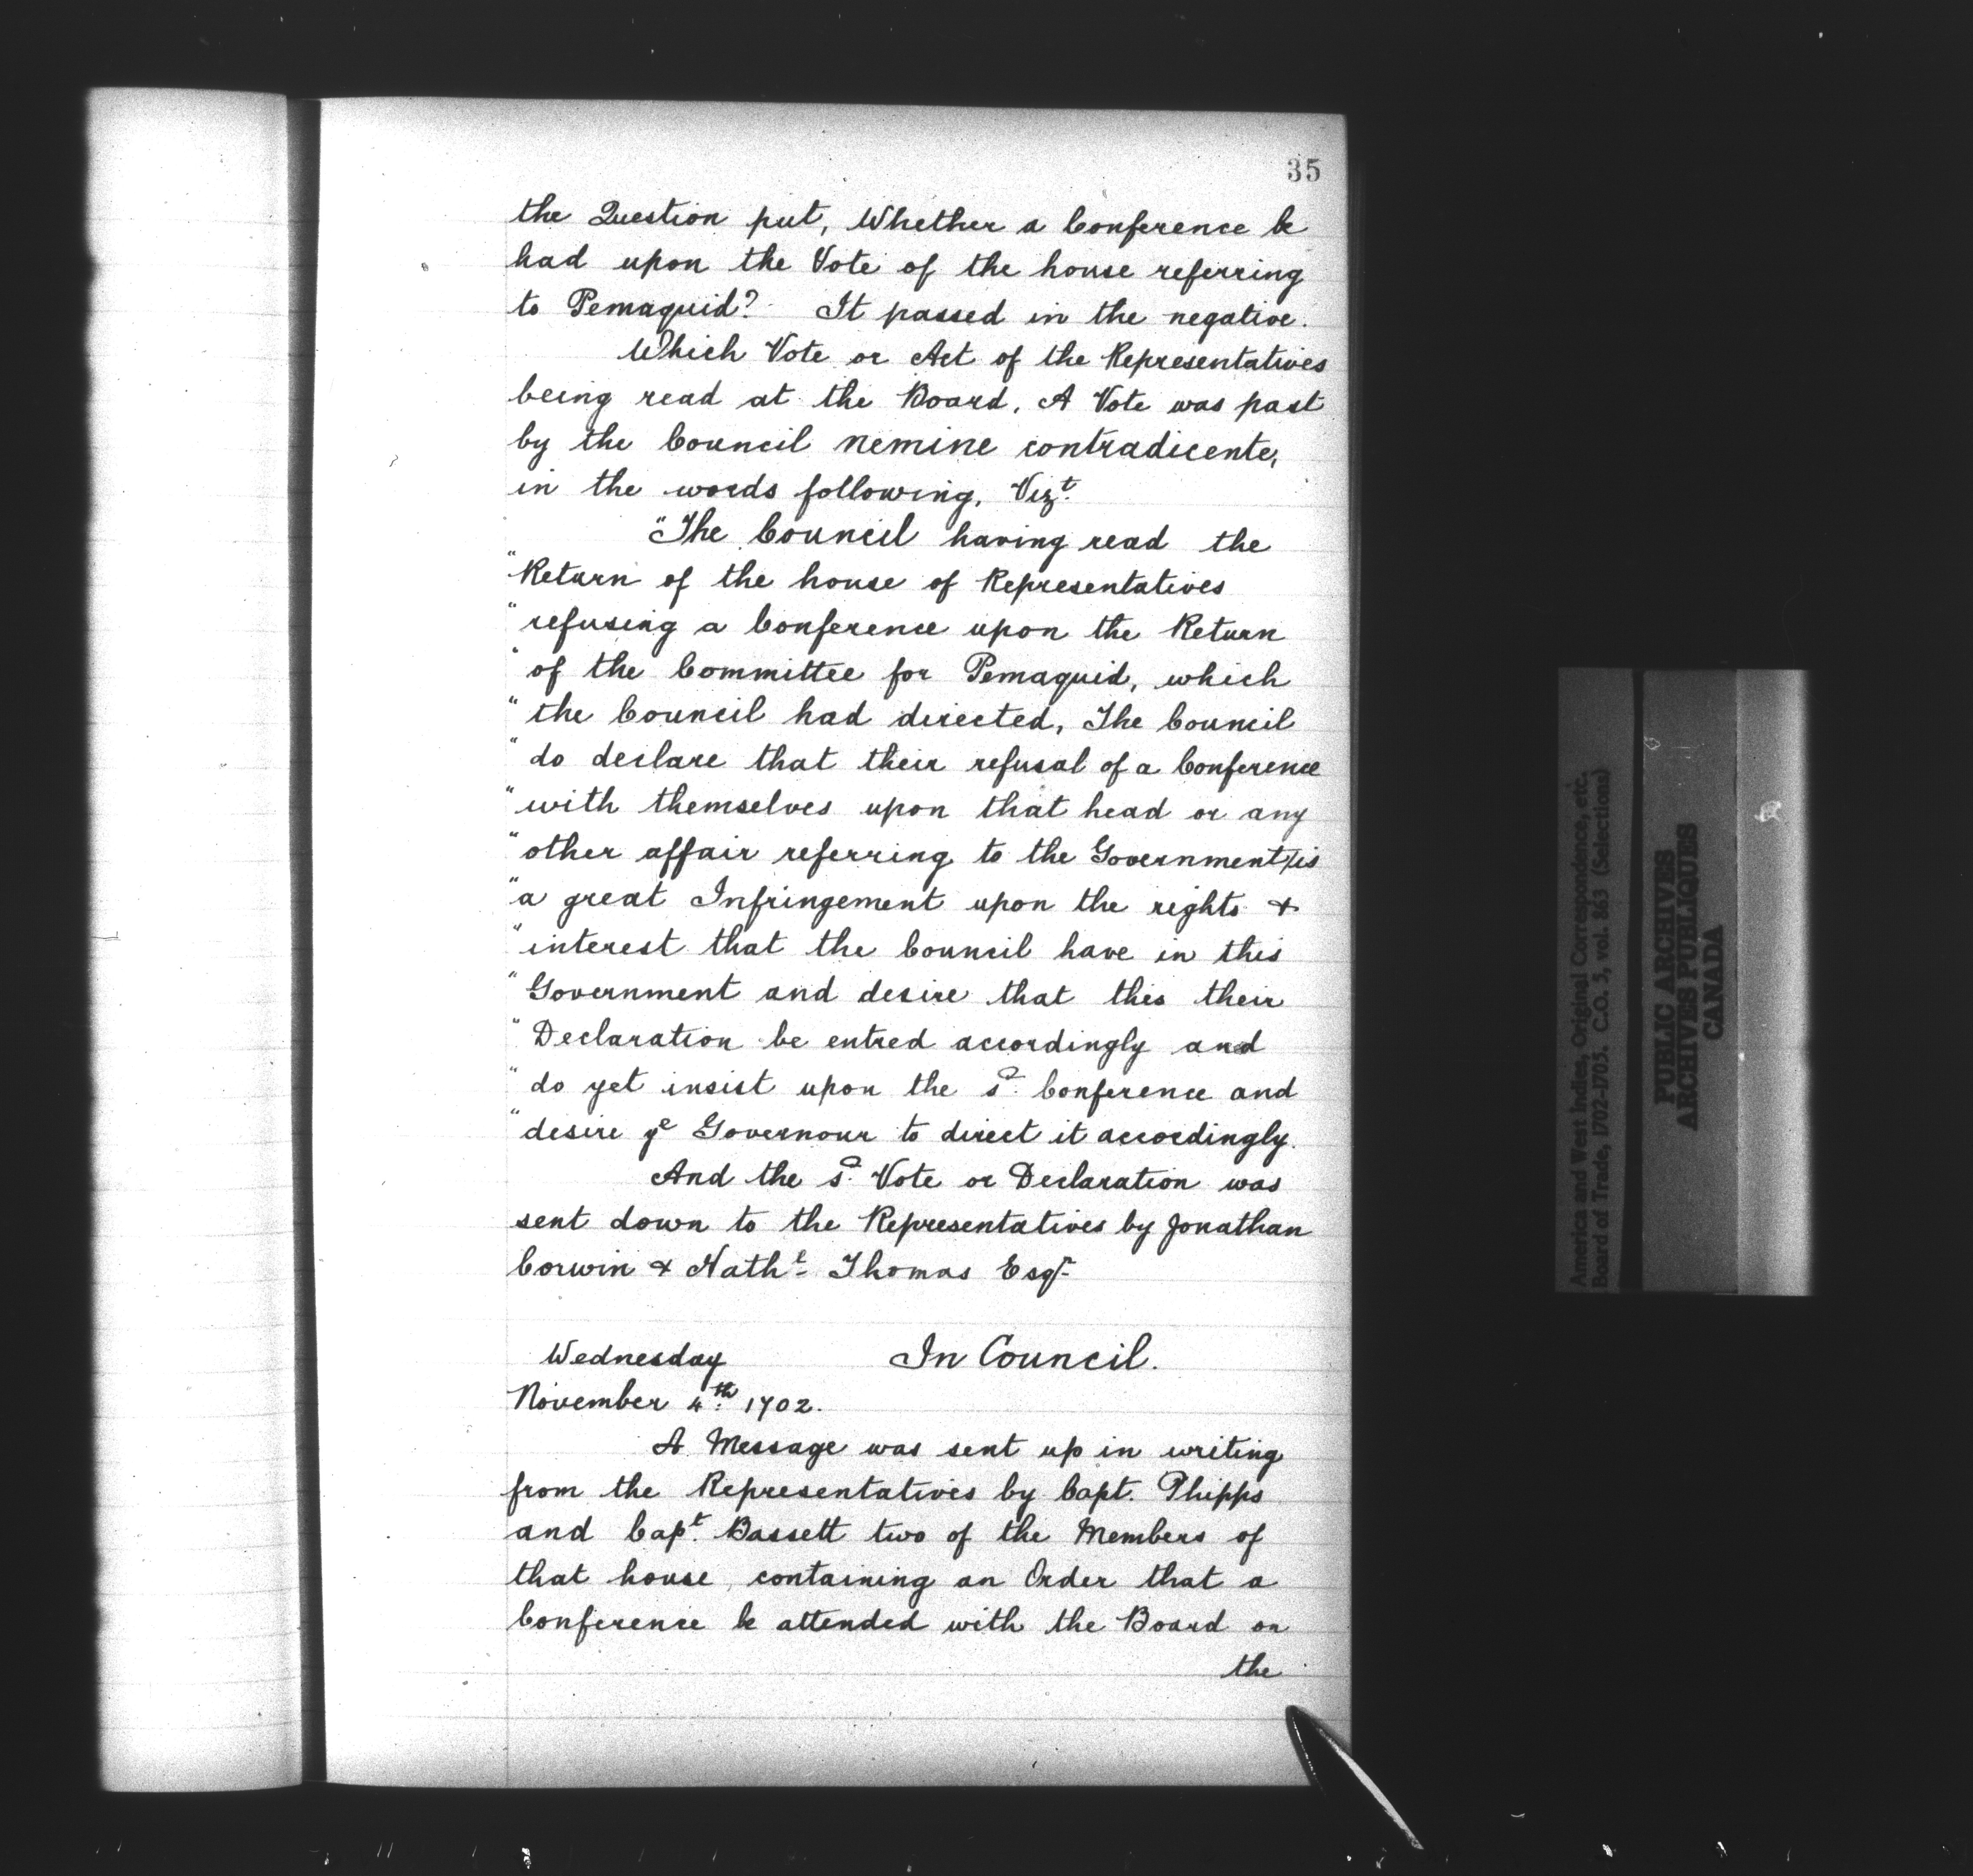 35
the Question put, Whether a Conference be
had upon the Vote of the house referring
to Pemaquid? It passed in the negative.
Which Vote or Act of the Representatives
being read at the Board, A Vote was past
by the Council nemine contradicente,
in the words following, Vizt.
"The Council having read the
"Return of the house of Representatives
"refusing a Conference upon the Return
"of the Committee for Pemaquid, which
"the Council had directed, The Council
"do declare that their refusal of a Conference
"with themselves upon that head or any
"other affair referring to the Government, is
"a great Infringement upon the rights &
"interest that the Council have in this
"Government and desire that this their
"Declaration be entred accordingly and
"do yet insist upon the sd. Conference and
"desire ye Governour to direct it accordingly.
And the sd. Vote or Declaration was
sent down to the Representatives by Jonathan
Corwin & Nathl. Thomas Esqr.
Wednesday In Council.
November 4th. 1702.
A Message was sent up in writing
from the Representatives by Capt. Phipps
and Capt. Bassett two of the Members of
that house, containing an Order that a
Conference be attended with the Board on
the
America and West Indies, Original Correspondence, etc.
Board of Trade, 1702-1703. C.O. 5, vol. 863 (Selections)
PUBLIC ARCHIVES
ARCHIVES PUBLIQUES
CANADA